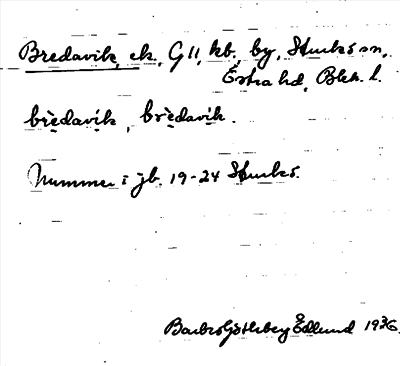 Bredavik, ek. G 11, kb, by, Sturkö sn,
Östra hd, Blek. l.
brèdavík, brèdavik.
Nummer i jb. 19-24 Sturkö.
Barbro Götheberg Edlund 1936.